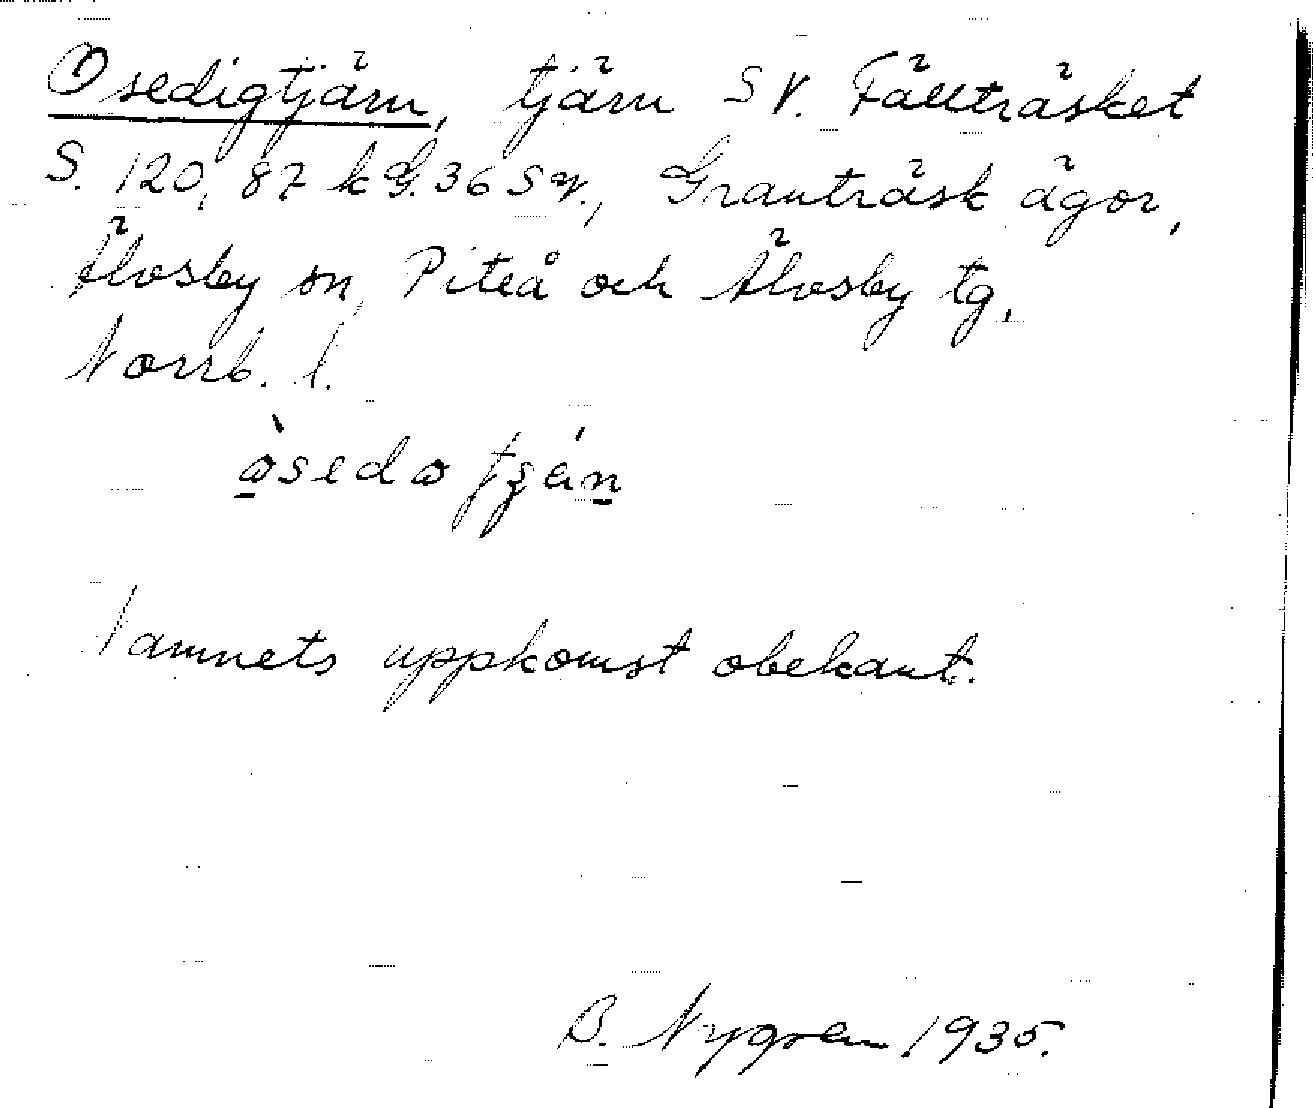 Osedigtjärn, tjärn SV. Fällträsket
S. 120, 87 k G. 36 SV., Granträsk ägor,
Älvsby sn, Piteå och Älvsby tg.
Norrb. l.
Namnets uppkomst obekant.
B. Nygren 1935.